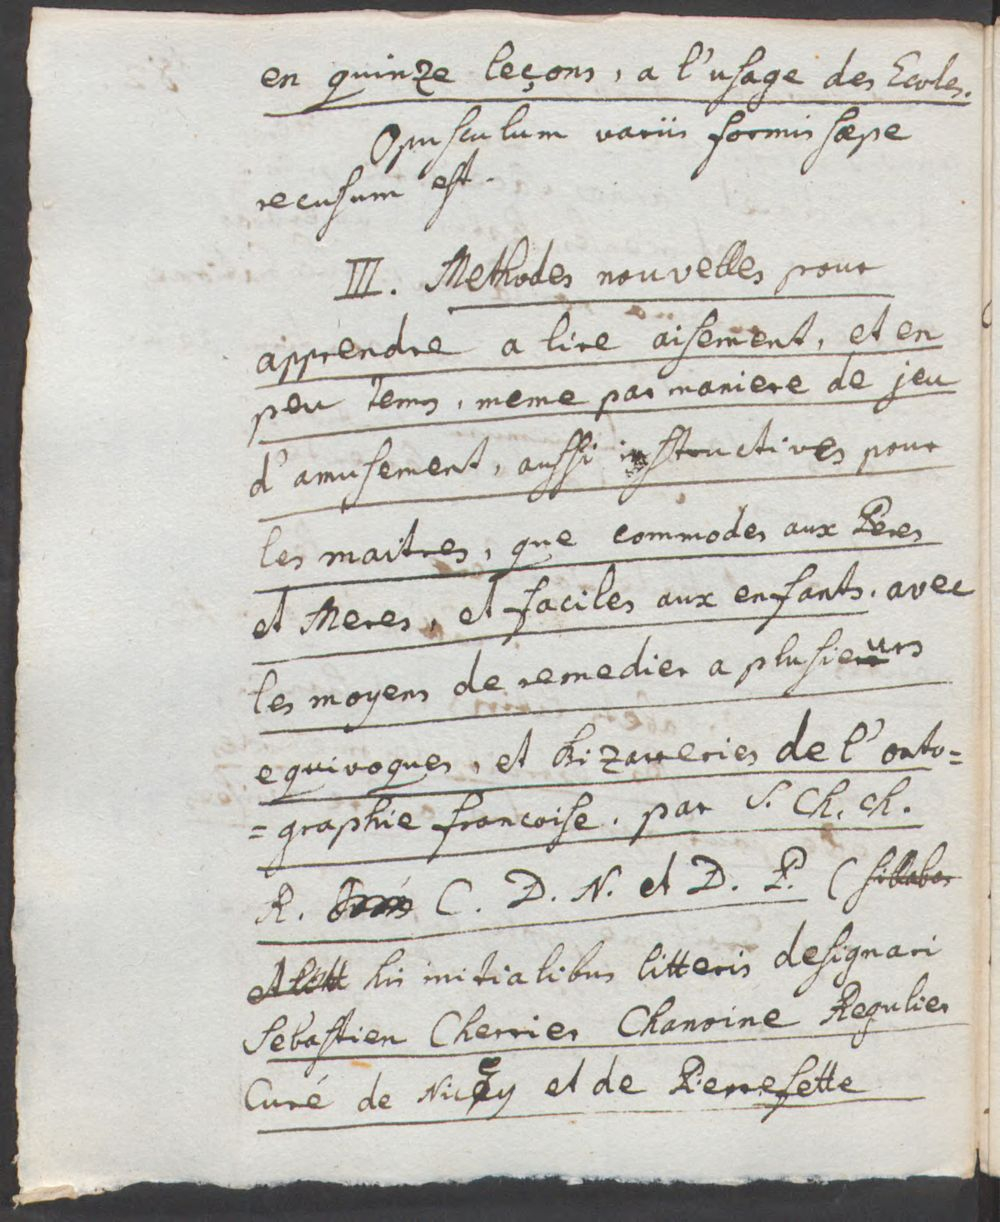 en quinze leçons, a l'usage des Ecoles.
Opusculum variis formis sæpe
recusum est.
III. Methodes nouvelles pour
apprendre a lire aisement, et en
peu tems, meme par maniere de jeu
d'amusement, aussi instructives pour
les maitres, que commodes aux Peres
et Meres, et faciles aux enfants. avec
les moyens de remedier a plusieurs
equivoques, et bizarreries de l'orto=
=graphie francoise. par S. Ch. ch.
R. C. D. N. et D. P. (
his initialibus litteris designari
Sebastien Cherrier Chanoine Regulier
Curé de Nicey et de Pierrefitte